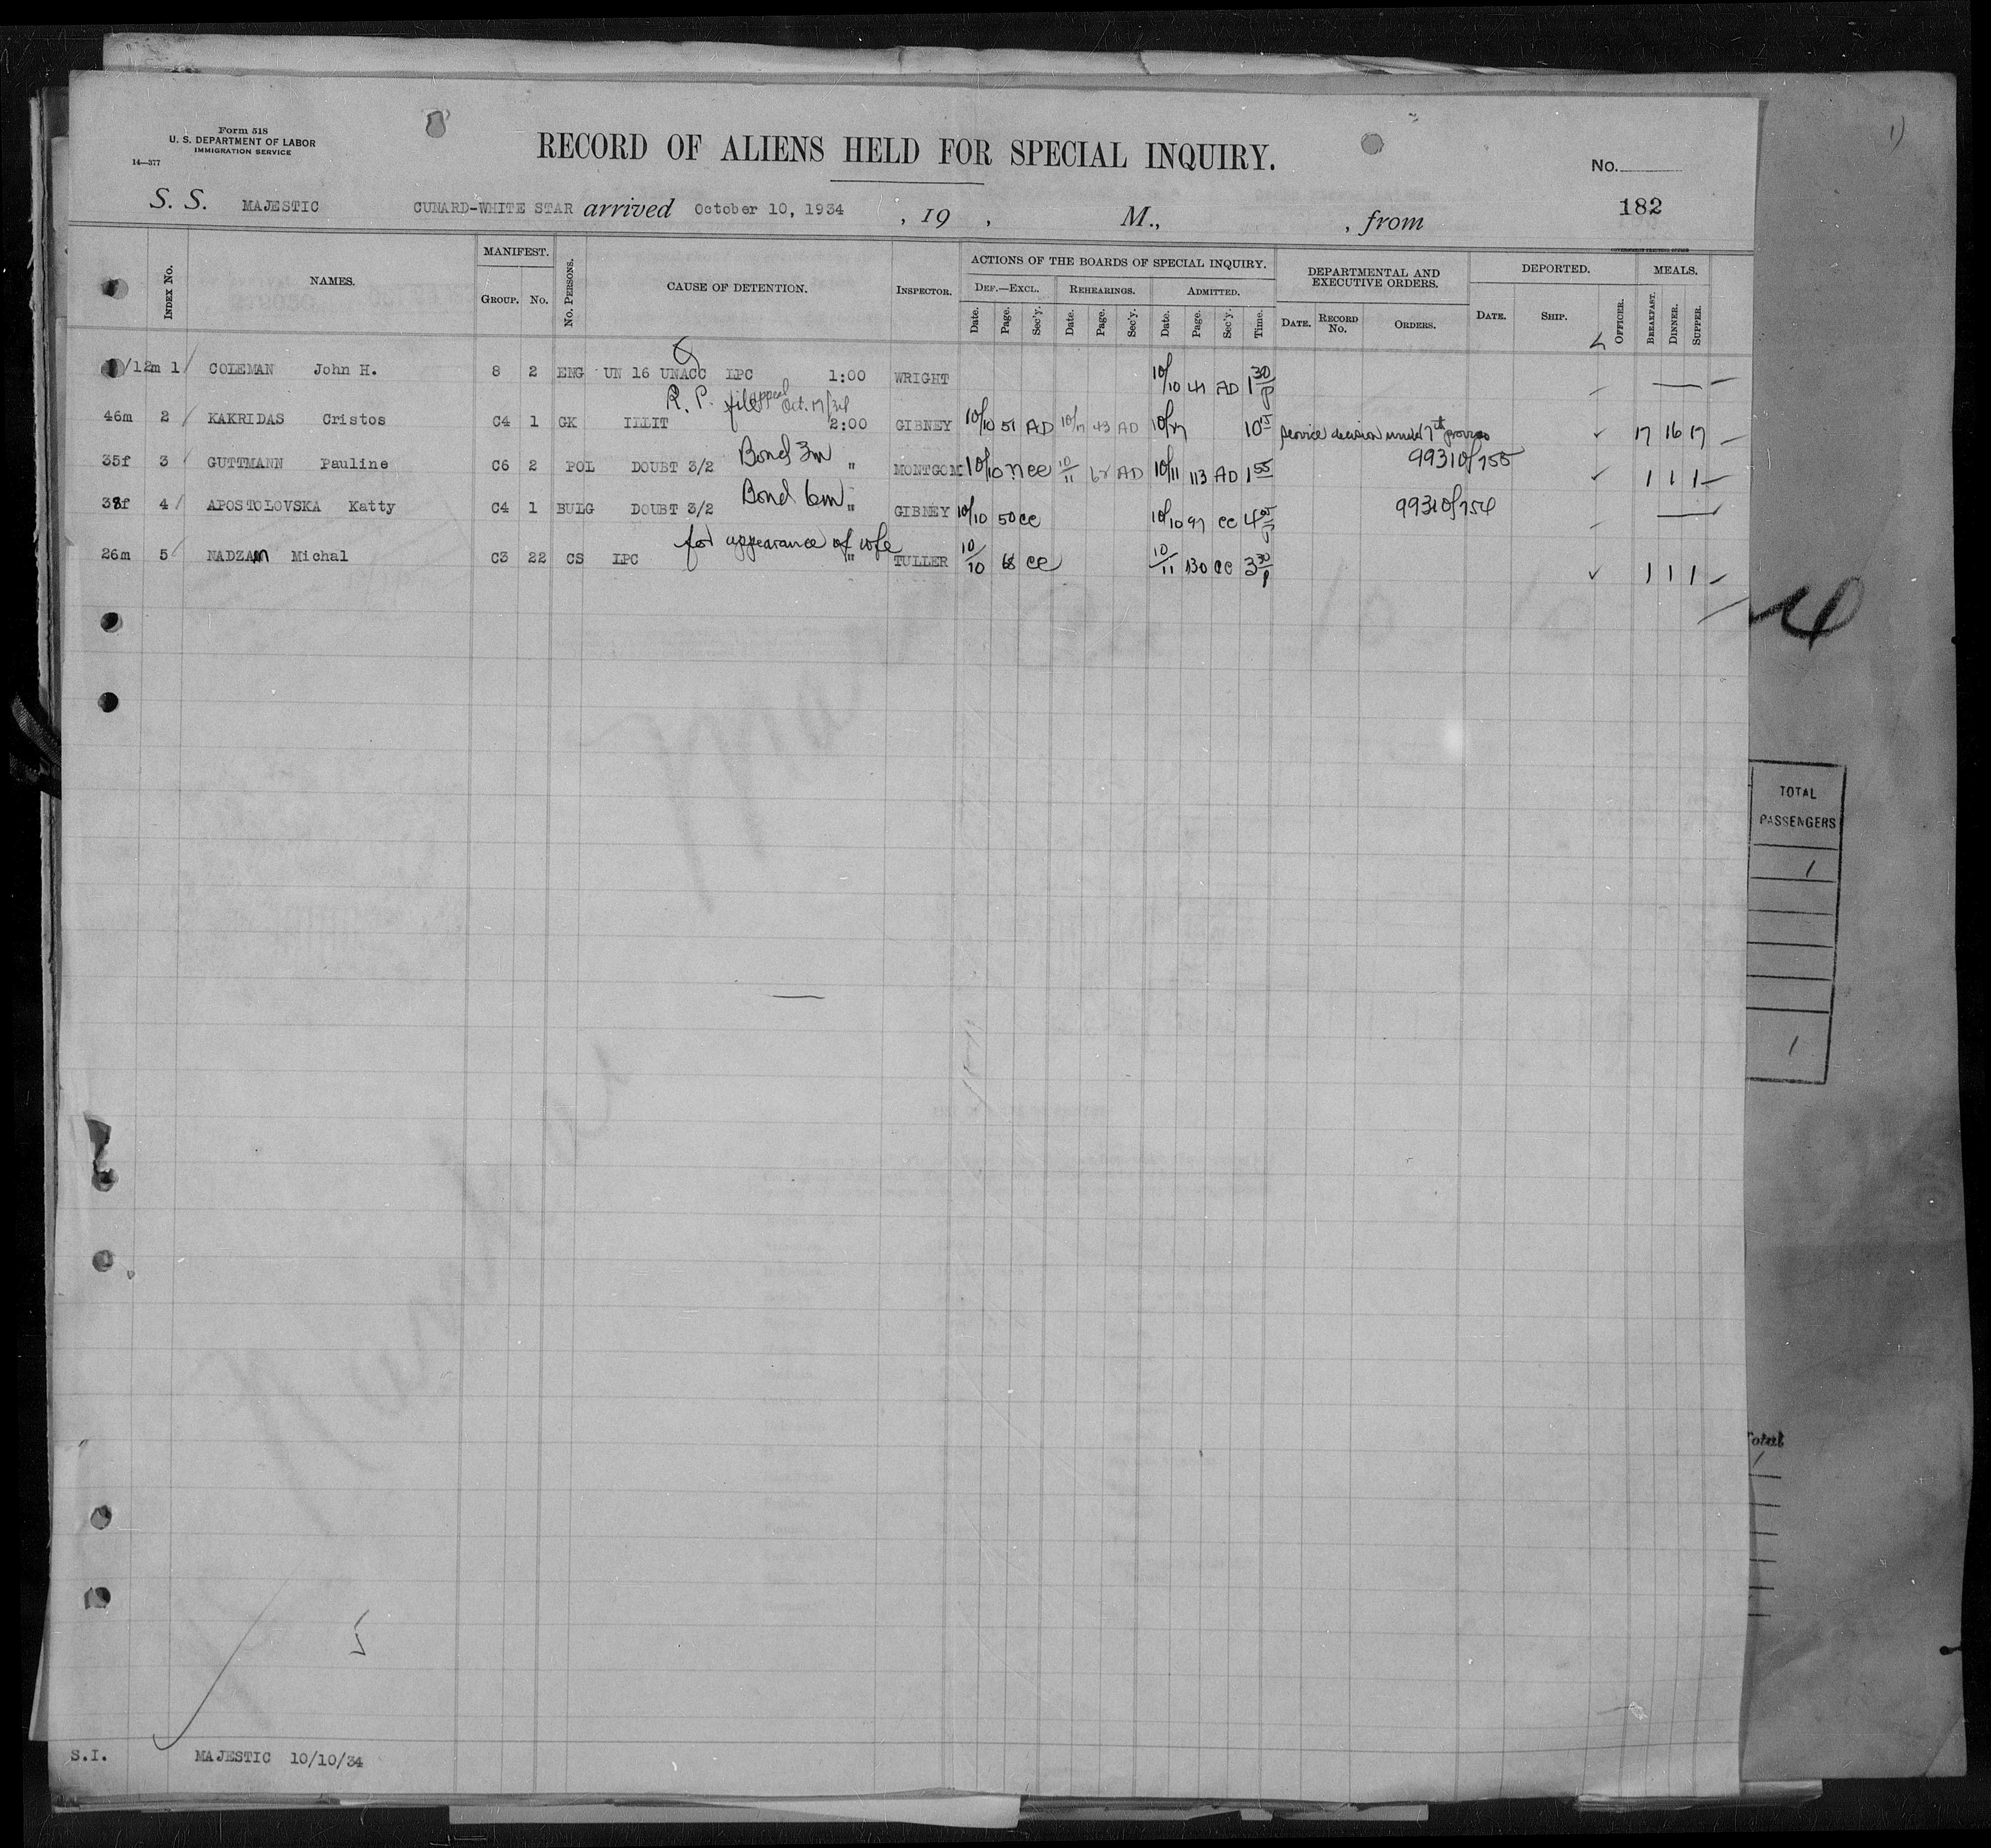 Form 518
U. S. DEPARTMENT OF LABOR
IMMIGRATION SERVICE
14—377
RECORD OF ALIENS HELD FOR SPECIAL INQUIRY.
No.
182
S. S. MAJESTIC CUNARD-WHITE STAR arrived October 10, 1934 , 19 , M., , from
GOVERNMENT PRINTING OFFICE
INDEX NO. NAMES. MANIFEST. GROUP. NO. NO. PERSONS. CAUSE OF DETENTION. INSPECTOR. ACTIONS OF THE BOARDS OF SPECIAL INQUIRY. DEPARTMENTAL AND EXECUTIVE ORDERS. DEPORTED. MEALS.
DEF.—EXCL. REHEARINGS. ADMITTED.
Date. Page. Sec'y. Date. Page. Sec'y. Date. Page. Sec'y. Time. DATE. RECORD NO. ORDERS. DATE. SHIP. OFFICER. BREAKFAST. DINNER. SUPPER.
/12m 1 COLEMAN John H. 8 2 ENG UN 16 UNACC LPC 1:00 WRIGHT 10/10 41 AD 1 30 P
R. P. file appeal Oct. 17/34
46m 2 KAKRIDAS Cristos C4 1 GK ILLIT 2:00 GIBNEY 10/10 51 AD 10/17 43 AD 10/17 10 15 Service decision under 7th proviso 17 16 17
Bond 3m 99310/755
35f 3 GUTTMANN Pauline C6 2 POL DOUBT 3/2 " MONTGOM 10/10 71 CC 10/11 62 AD 10/11 113 AD 1 55 1 1 1
Bond 6m 99310/754
38f 4 APOSTOLOVSKA Katty C4 1 BULG DOUBT 3/2 " GIBNEY 10/10 50 CC 10/10 97 CC 4 05 P
for appearance of wife
26m 5 NADZAM Michal C3 22 CS LPC " TULLER 10/10 68 CC 10/11 130 CC 3 30 P 1 1 1
TOTAL
PASSENGERS
1
1
Total
1
5
S.I. MAJESTIC 10/10/34